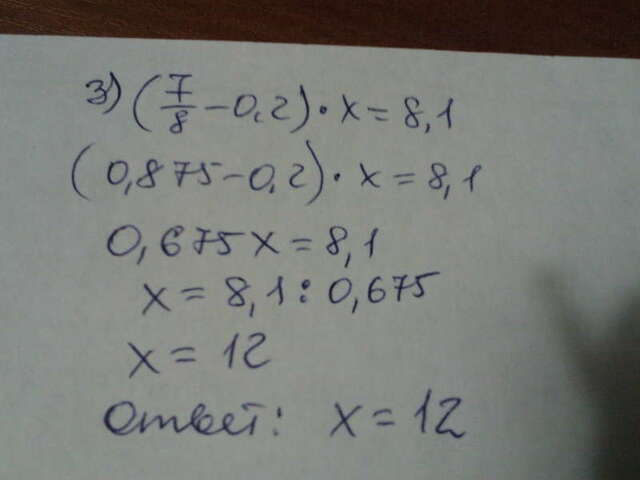 3) (7/8 - 0,2) · x = 8,1
(0,875 - 0,2) · x = 8,1
0,675 x = 8,1
x = 8,1 : 0,675
x = 12
Ответ: x = 12